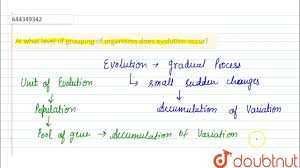 644349342
At what level of grouping of organisms does evolution occur?
Evolution → gradual Process
Unit of Evolution
↳ small sudden changes
Population
Accumulation of Variation
Pool of gene → Accumulation of Variation
doubtnut